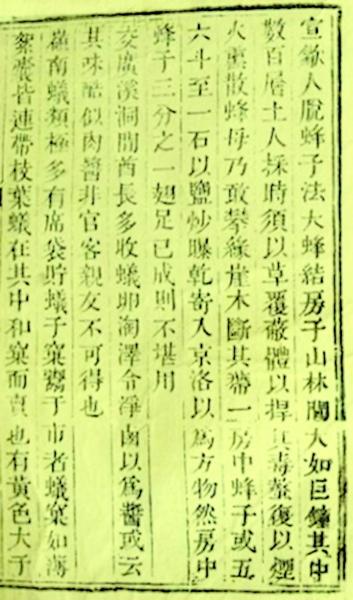 宣歙人脫蜂子法大蜂結房于山林間大如巨鐘其中
數百層土人採時須以草覆蔽體以捍其毒螫復以煙
火熏散蜂母乃敢攀緣崖木斷其蔕一房中蜂子或五
六斗至一石以鹽炒曝乾寄入京洛以為方物然房中
蜂子三分之一翅足已成則不堪用
交廣溪洞間酋長多收蟻卵淘澤令淨鹵以為醬或云
其味酷似肉醬非官客親友不可得也
嶺南蟻類極多有席袋貯蟻子窠鬻于市者蟻窠如薄
絮囊皆連帶枝葉蟻在其中和窠而賣也有黃色大于